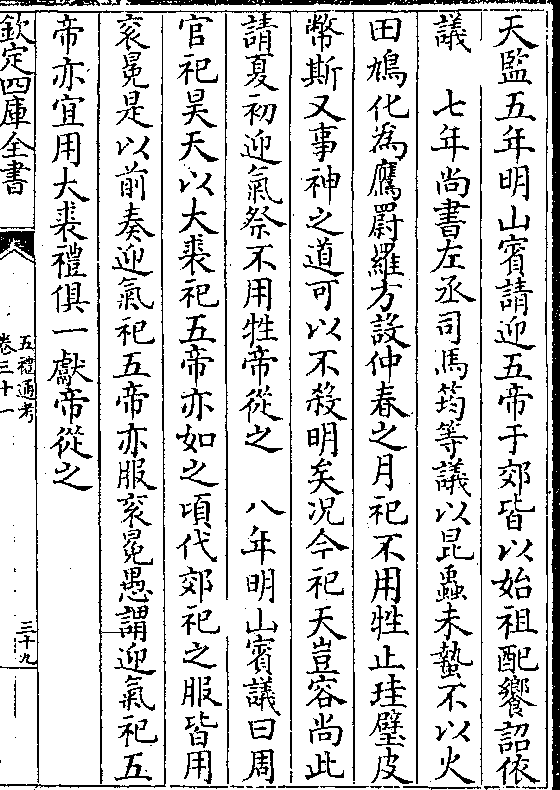 天監五年明山賓請迎五帝于郊皆以始祖配饗詔依
議　七年尚書左丞司馬筠等議以昆蟲未蟄不以火
田鳩化為鷹罻羅方設仲春之月祀不用牲止珪璧皮
幣斯又事神之道可以不殺明矣况今祀天豈容尚此
請夏初迎氣祭不用牲帝從之　八年明山賓議曰周
官祀昊天以大裘祀五帝亦如之頃代郊祀之服皆用
衮冕是以前奏迎氣祀五帝亦服衮冕愚謂迎氣祀五
帝亦宜用大裘禮俱一獻帝從之
欽定四庫全書
五禮通考
卷三十一
三十九